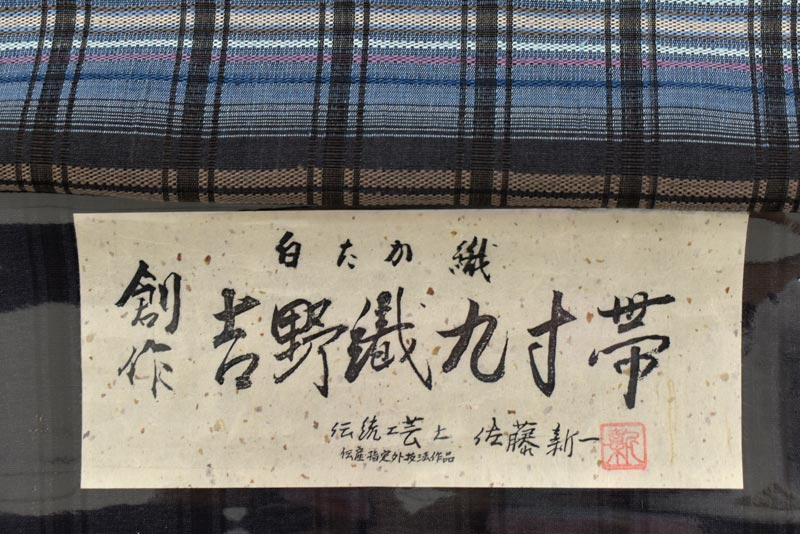 白たか織
創作
吉野織九寸帯
伝統工芸士 佐藤新一
伝産指定外技法作品
新